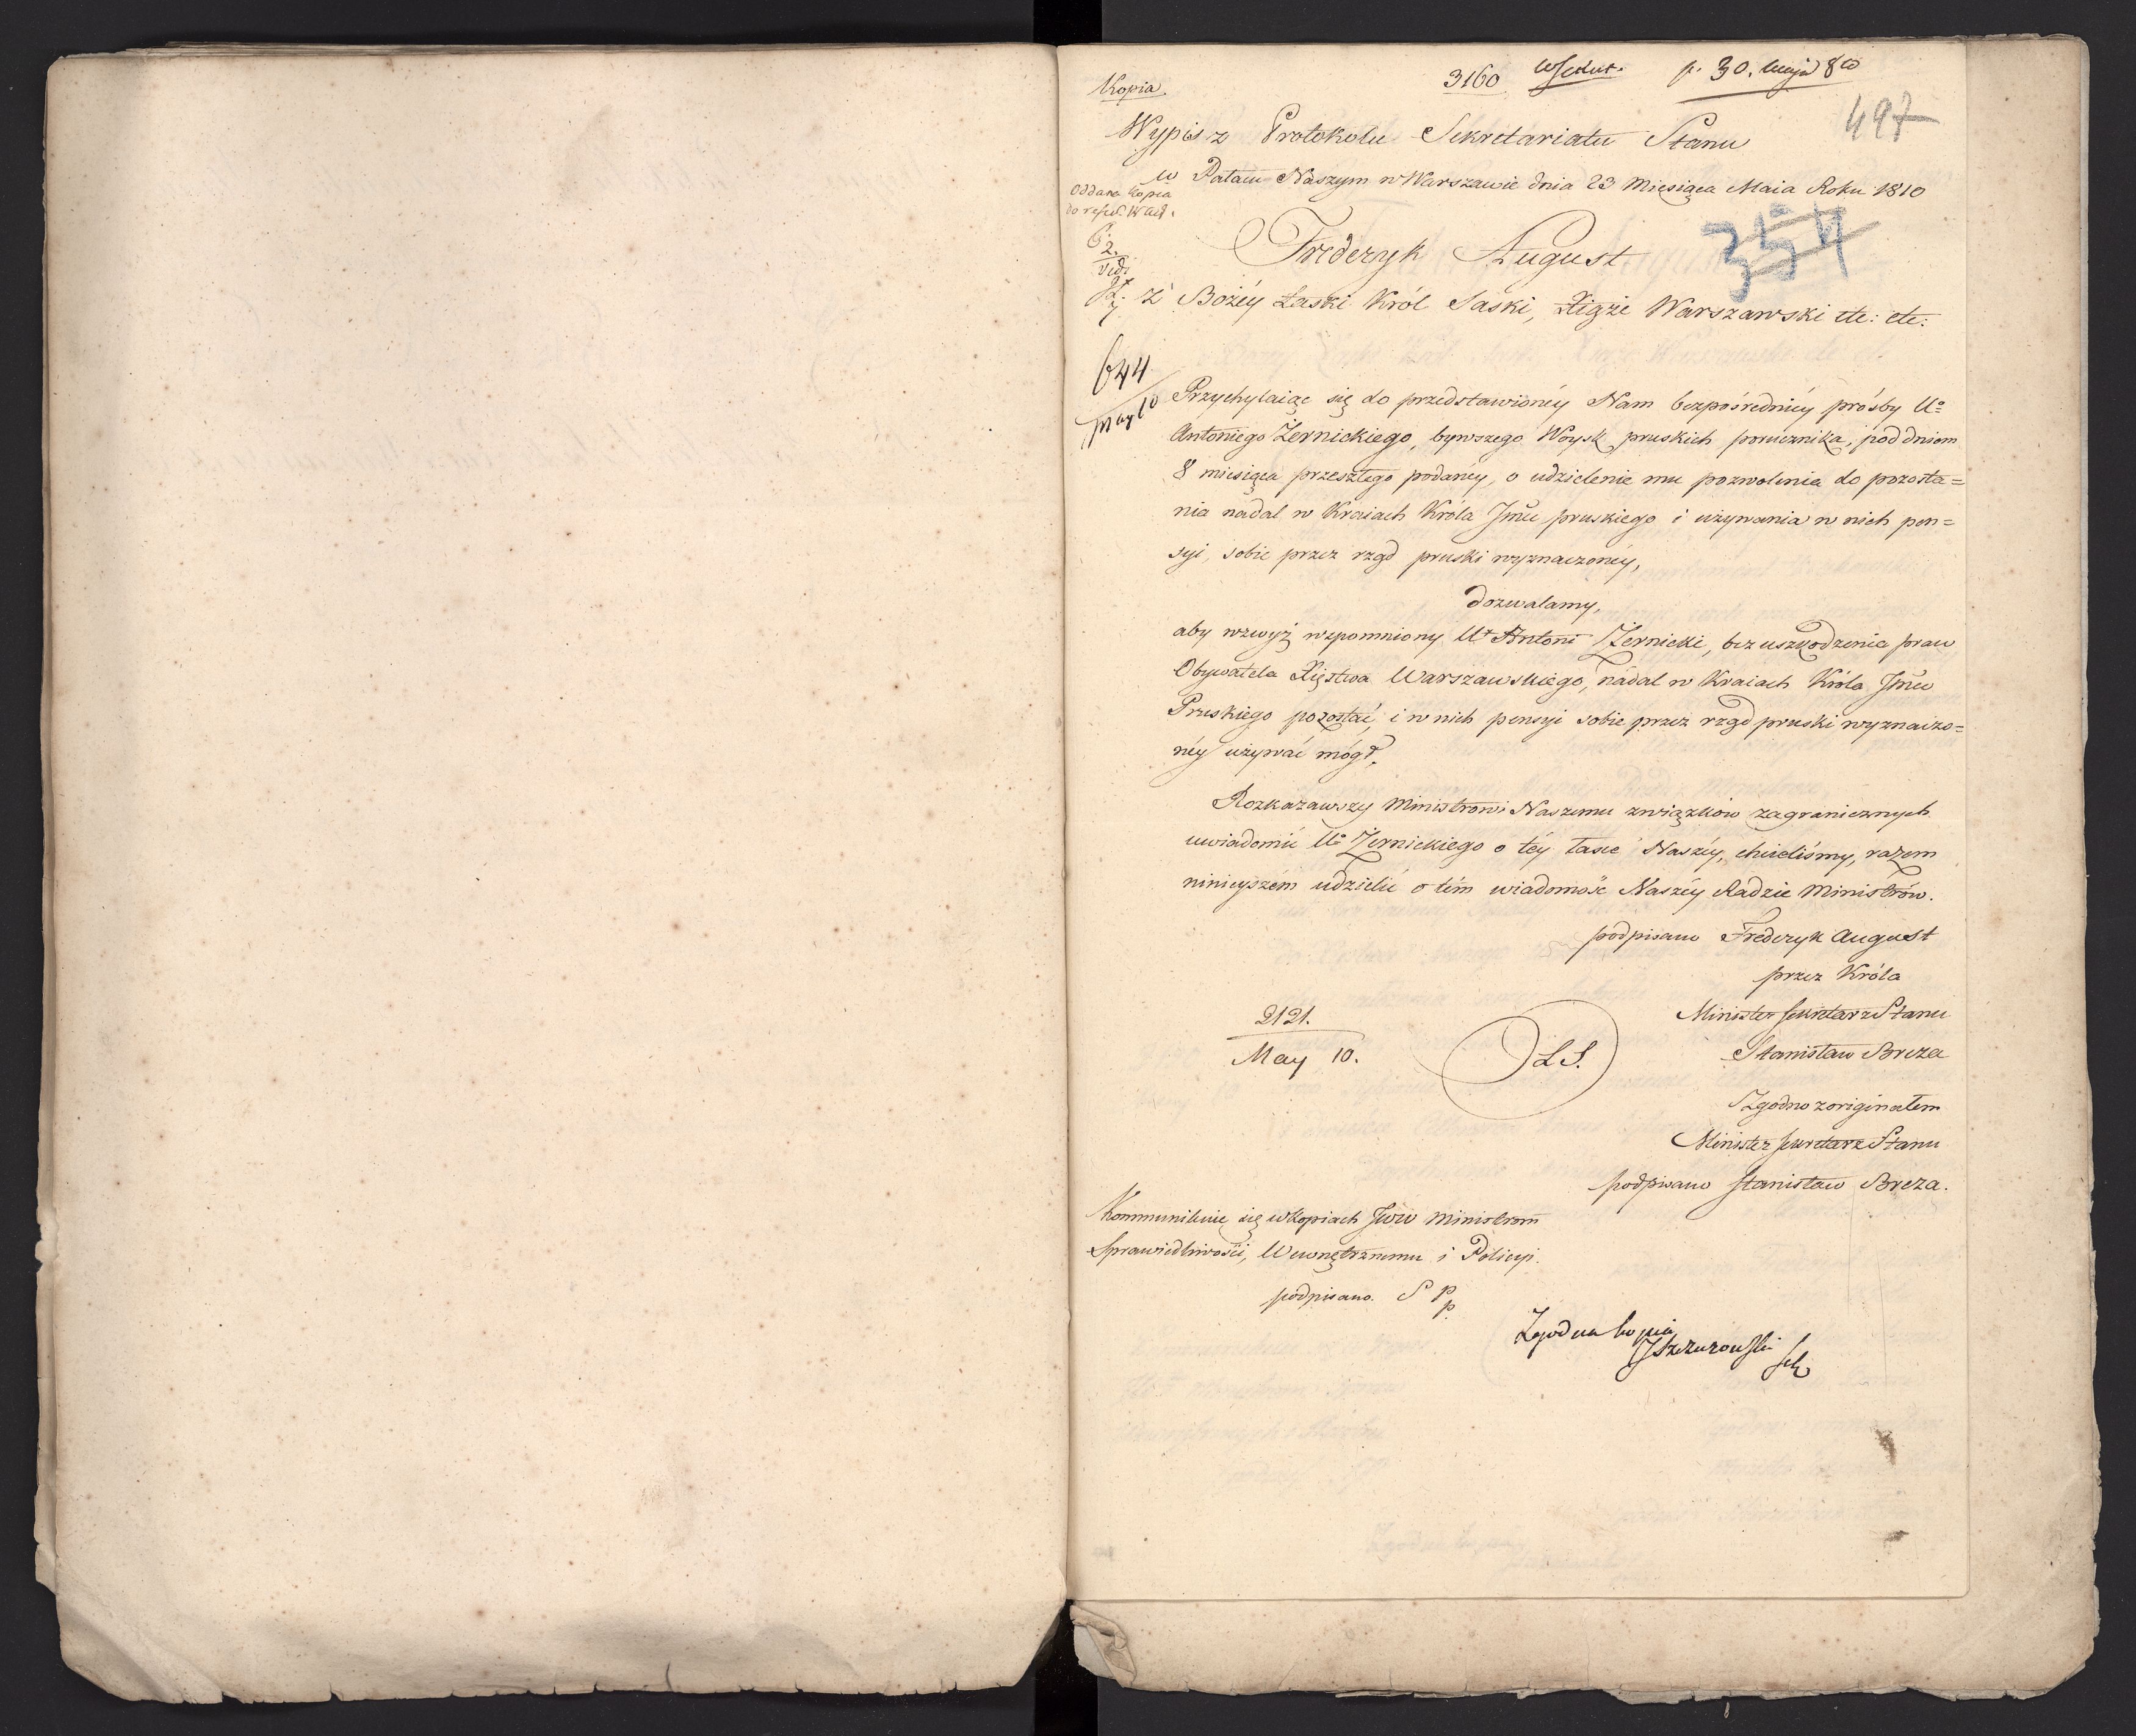 Kopia.
3160
p. 30. maja 8 co
497
Wypis z Protokołu Sekretariatu Stanu
w Pałacu Naszym w Warszawie dnia 23 Miesiąca Maia Roku 1810
Oddana kopia
354
Frideryk August
2.
Vidi
z Bożéy Łaski Król Saski, Xiąże Warszawski etc: etc:
644
May 10
Przychylaiąc się do przedstawionéy Nam bezpośrednićy prośby Uo
Antoniego Żernickiego, bywszego Woysk pruskich porucznika, pod dniem
8 miesiąca przeszłego podanéy, o udzielenie mu pozwolenia do pozosta=
nia nadal w Kraiach Króla Jmci pruskiego i używania w nich pen=
syi, sobie przez rząd pruski wyznaczonéy,
dozwalamy,
aby wzwyż wspomniony Ur Antoni Żernicki, bez uszkodzenia praw
Obywatela Xięstwa Warszawskiego, nadal w Kraiach Króla Jmci
Pruskiego pozostać, i w nich pensyi sobie przez rząd pruski wyznaczo=
néy używać mógł.
Rozkazawszy Ministrowi Naszemu związków zagranicznych
uwiadomić Uo Żernickiego o téy łasce Naszéy, chcieliśmy, razem
ninieyszém udzielić o tém wiadomość Naszéy Radzie Ministrów.
podpisano Frederyk August
przez Króla
Minister Sekretarz Stanu
Stanisław Breza
2121.
May 10.
L.S.
Zgodno z originałem
Minister Sekretarz Stanu
podpisano Stanisław Breza.
Kommunikuie się w kopiach JWW Ministrom
Sprawiedliwości, Wewnętrznemu i Policyi.
podpisano. S P
p
Zgodna kopia